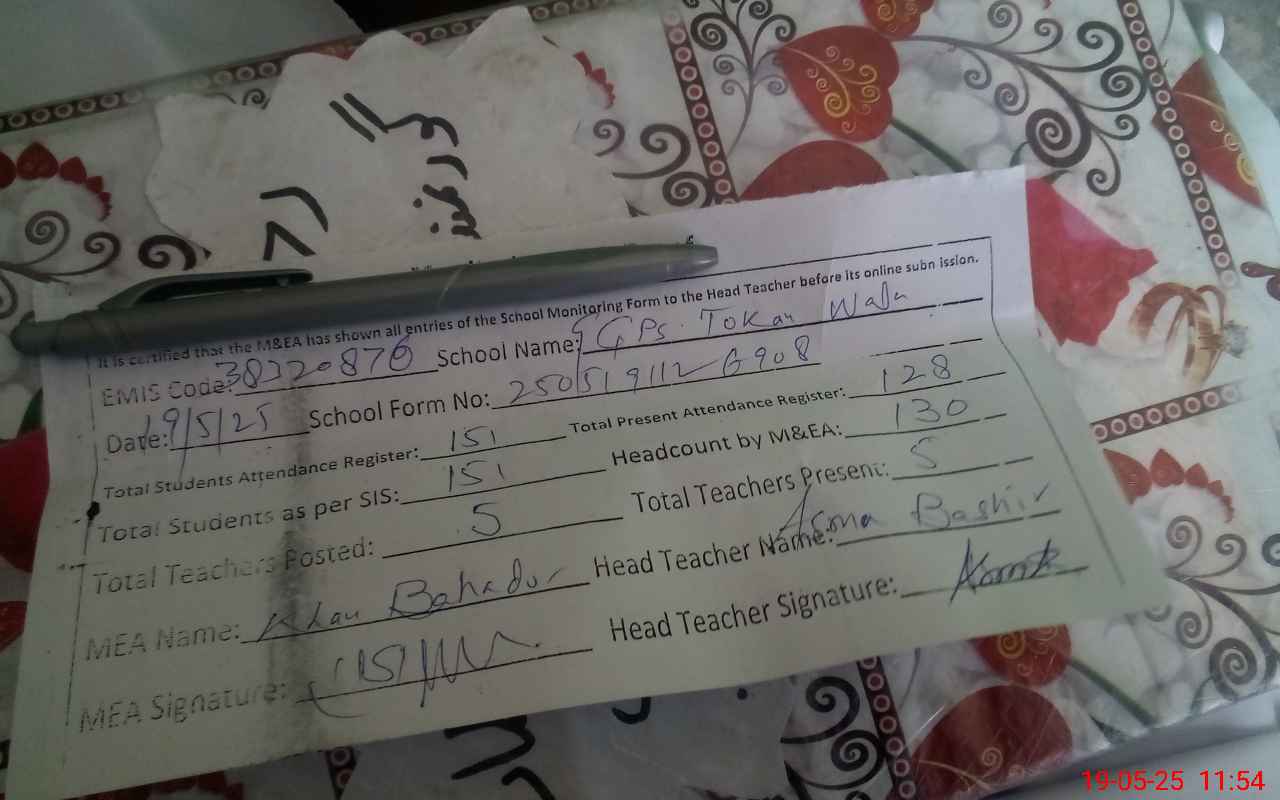 It is certified that the M&EA has shown all entries of the School Monitoring Form to the Head Teacher before its online submission.
EMIS Code: 38320876 School Name: GPS. Tokan Wala
Date: 19/5/25 School Form No: 2505191126908
Total Students Attendance Register: 151 Total Present Attendance Register: 128
Total Students as per SIS: 151 Headcount by M&EA: 130
Total Teachers Posted: 5 Total Teachers Present: 5
MEA Name: Khan Bahadur Head Teacher Name: Asma Bashir
MEA Signature: Head Teacher Signature:
19-05-25 11:54